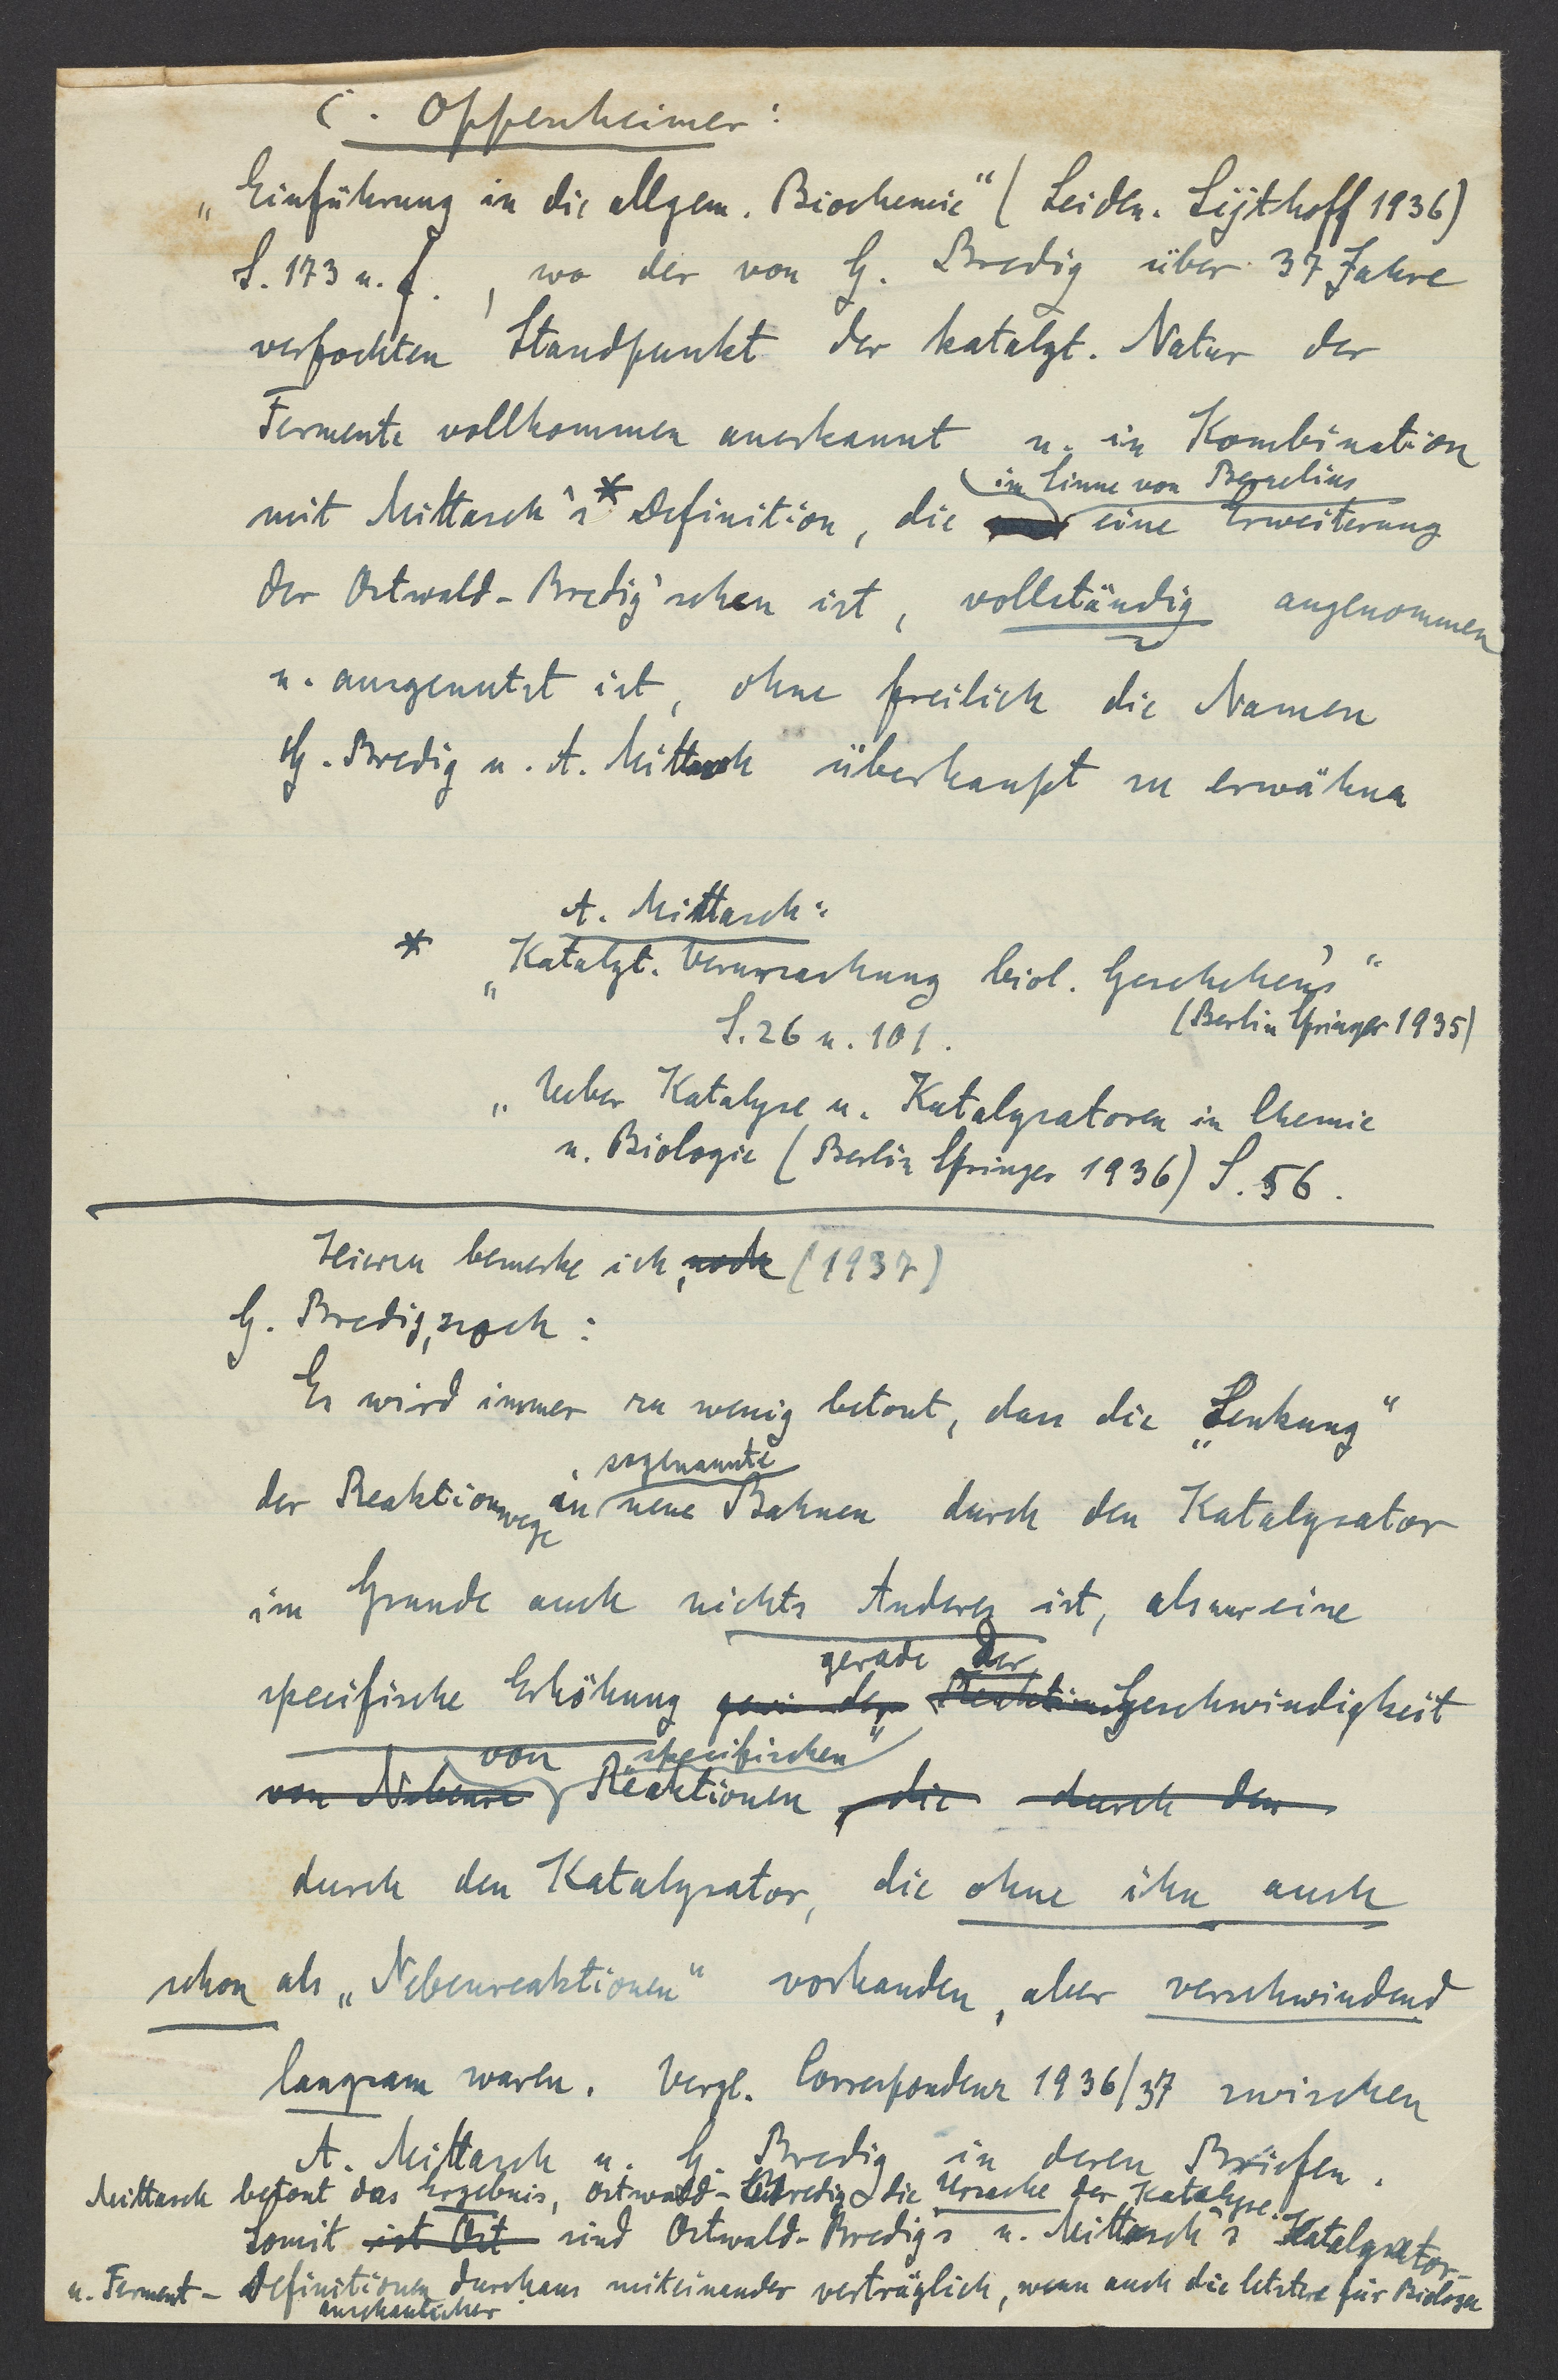 C. Oppenheimer:
„Einführung in die allgem. Biochemie“ (Leiden. Sijthoff 1936)
S. 173 u. f., wo der von G. Bredig über 37 Jahre
verfochten Standpunkt der katalyt. Natur der
Fermente vollkommen anerkannt u. in Kombination
im Sinne von Berzelius
mit Mittasch's* Definition, die eine Erweiterung
der Ostwald-Bredig'schen ist, vollständig angenommen
u. ausgenutzt ist, ohne freilich die Namen
G. Bredig u. A. Mittasch überhaupt zu erwähna
A. Mittasch:
* „Katalyt. Verursachung biol. Geschehen's“
(Berlin Springer 1935)
S. 26 u. 101.
„Ueber Katalyse u. Katalysatoren in Chemie
u. Biologie (Berlin Springer 1936) S. 56.
Hierzu bemerke ich, noch (1937)
G. Bredig, noch:
Es wird immer zu wenig betont, dass die „Lenkung“
sogenannte
der Reaktionswege in neue Bahnen durch den Katalysator
im Grunde auch nichts Anderes ist, als nur eine
gerade der
specifische Erhöhung der Reaktions Geschwindigkeit
von „specifischen“
von Nebenre Reaktionen, die durch den
durch den Katalysator, die ohne ihn auch
schon als „Nebenreaktionen“ vorhanden, aber verschwindend
langsam waren. Vergl. Correspondenz 1936/37 zwischen
A. Mittasch u. G. Bredig in deren Briefen.
Mittasch betont das Ergebnis, Ostwald-Bredig die Ursache der Katalyse.
Somit ist Ost sind Ostwald-Bredig's u. Mittasch's Katalysator-
u. Ferment-Definitionen durchaus miteinander verträglich, wenn auch die letztere für Biologen
anschaulicher